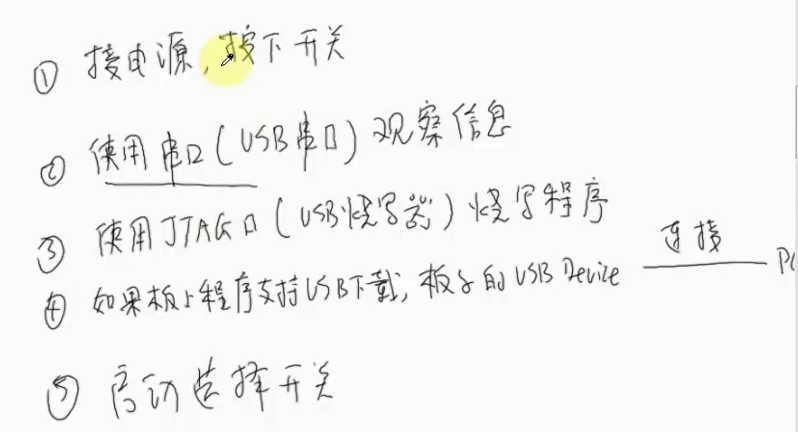 ① 接电源，按下开关
② 使用串口(USB串口)观察信息
③ 使用JTAG口(USB烧写器)烧写程序
④ 如果板上程序支持USB下载，板子的USB Device 连接 PC
⑤ 启动选择开关